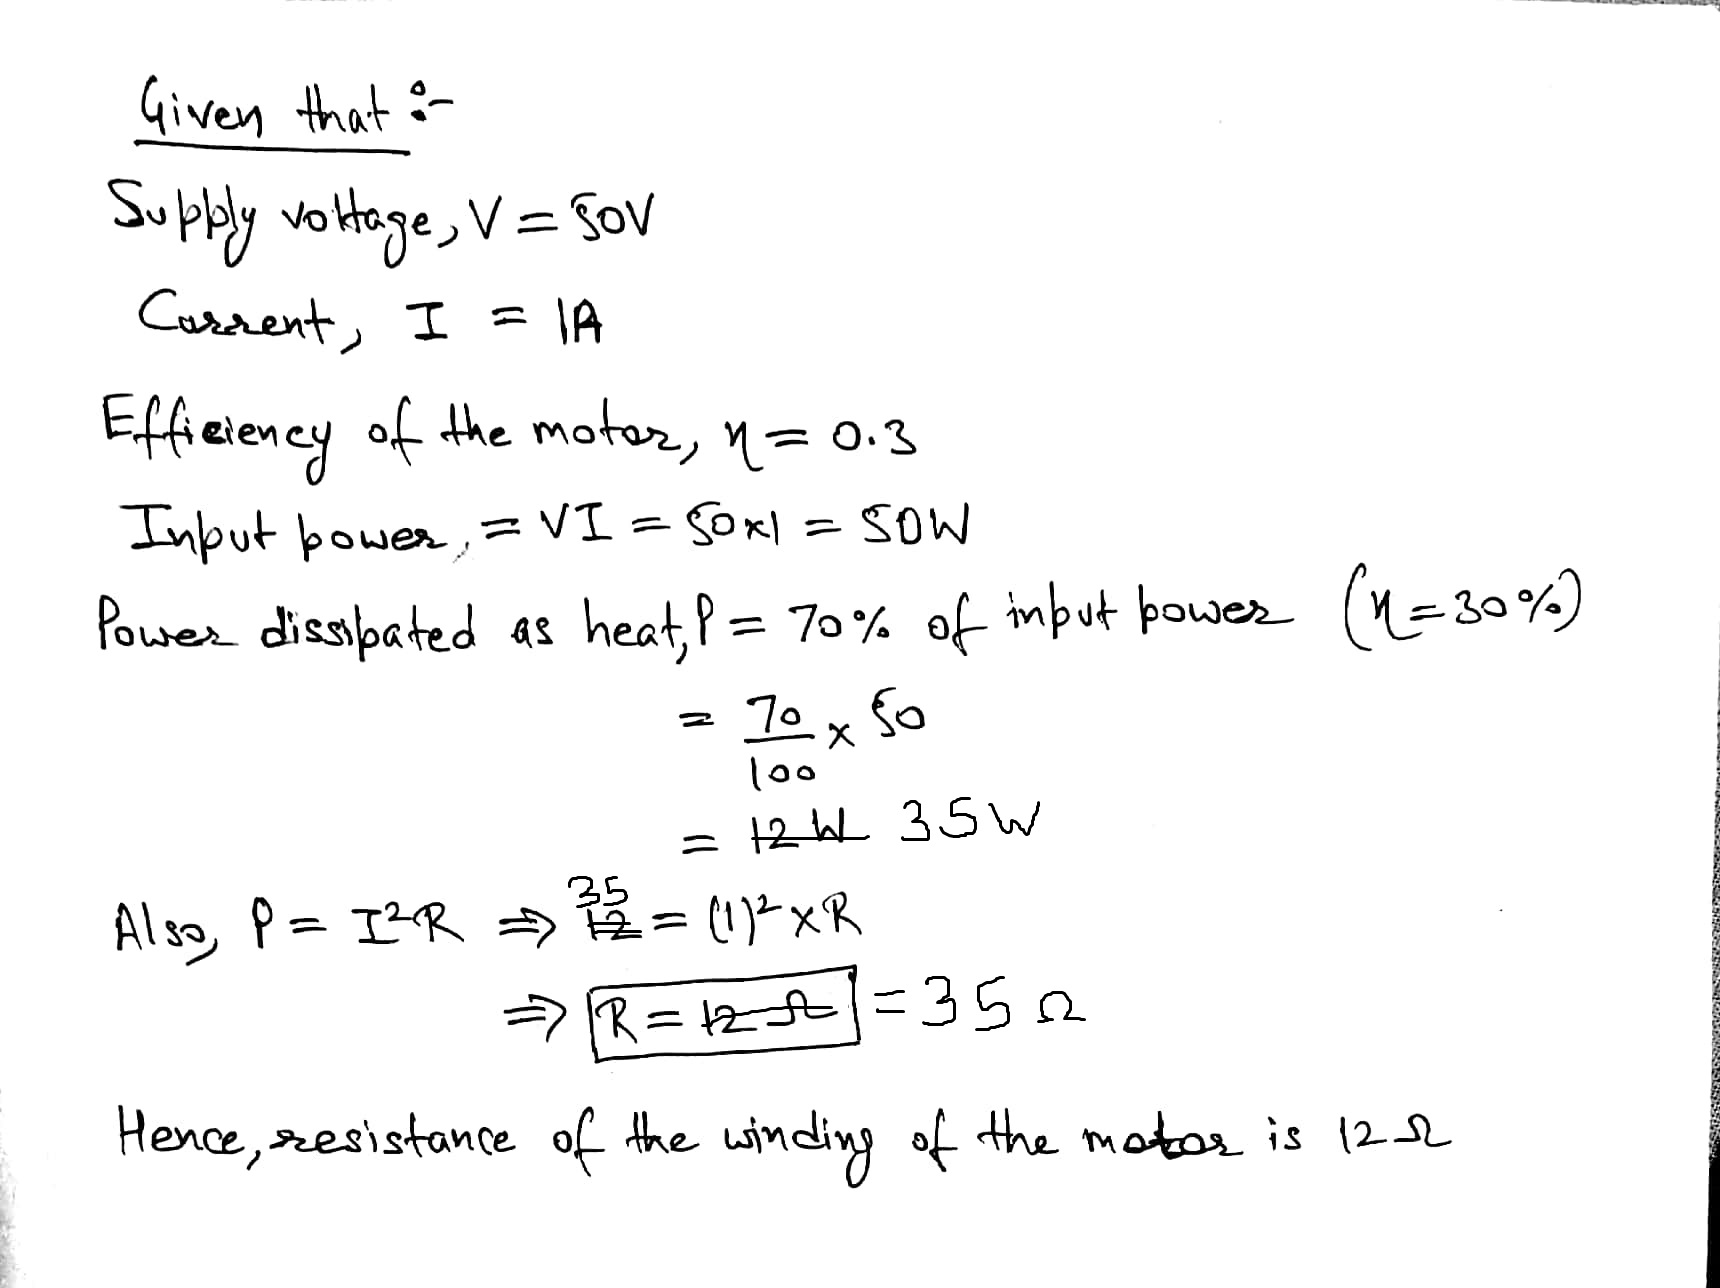 Given that :-
Supply voltage, V = 50V
Current, I = 1A
Efficiency of the motor, η = 0.3
Input power, = VI = 50x1 = 50W
Power dissipated as heat, P = 70% of input power (η = 30%)
= 70/100 x 50
= ~~12W~~ 35W
Also, P = I²R ⇒ ~~12~~ 35 = (1)² x R
⇒ R = ~~12Ω~~ = 35 Ω
Hence, resistance of the winding of the motor is 12Ω